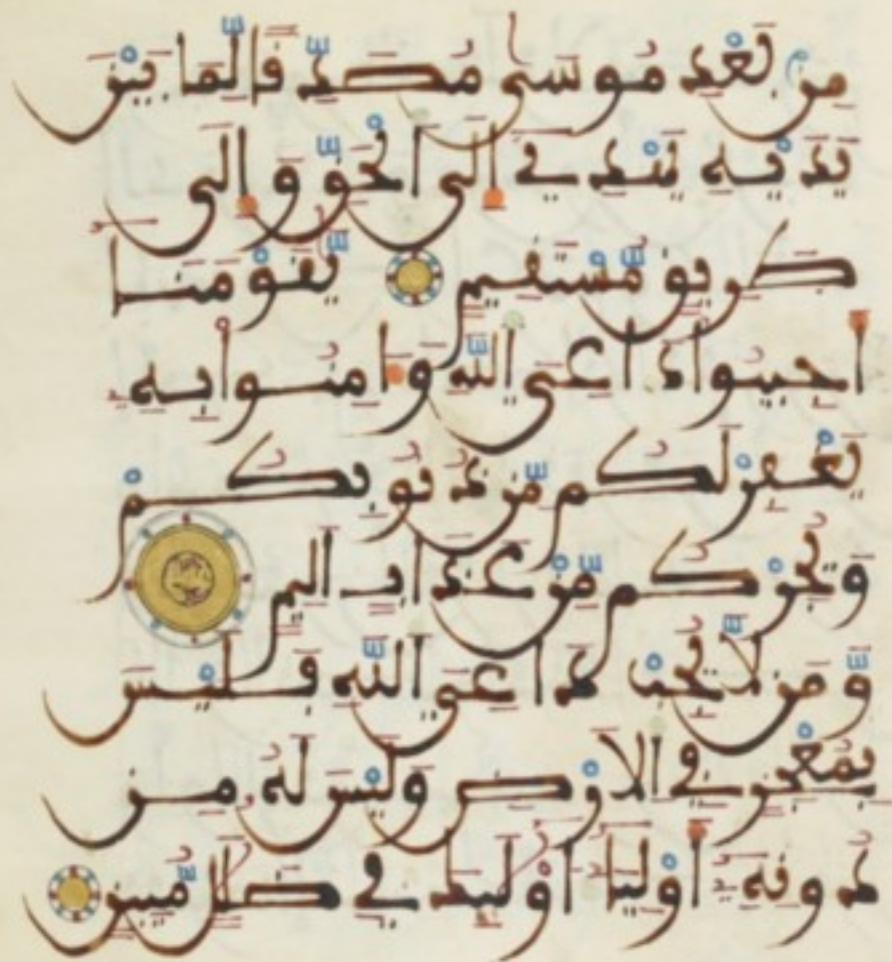 مِن بَعْدِ مُوسَىٰ مُصَدِّقاً لِّمَا بَيْنَ
يَدَيْهِ يَهْدِي إِلَى اَ۬لْحَقِّ وَإِلَىٰ
طَرِيقٍ مُّسْتَقِيمٍ يَٰقَوْمَنَا
أَجِيبُوا۟ دَاعِيَ اَ۬للَّهِ وَءَامِنُوا۟ بِهِۦ
يَغْفِرْ لَكُم مِّن ذُنُوبِكُمْ
وَيُجِرْكُم مِّنْ عَذَابٍ أَلِيمٍ
وَمَن لَّا يُجِبْ دَاعِيَ اَ۬للَّهِ فَلَيْسَ
بِمُعْجِزٍ فِي اِ۬لْأَرْضِ وَلَيْسَ لَهُۥ مِن
دُونِهِۦٓ أَوْلِيَآءُ ا۟وْلَٰٓئِكَ فِي ضَلَٰلٍ مُّبِينٍ